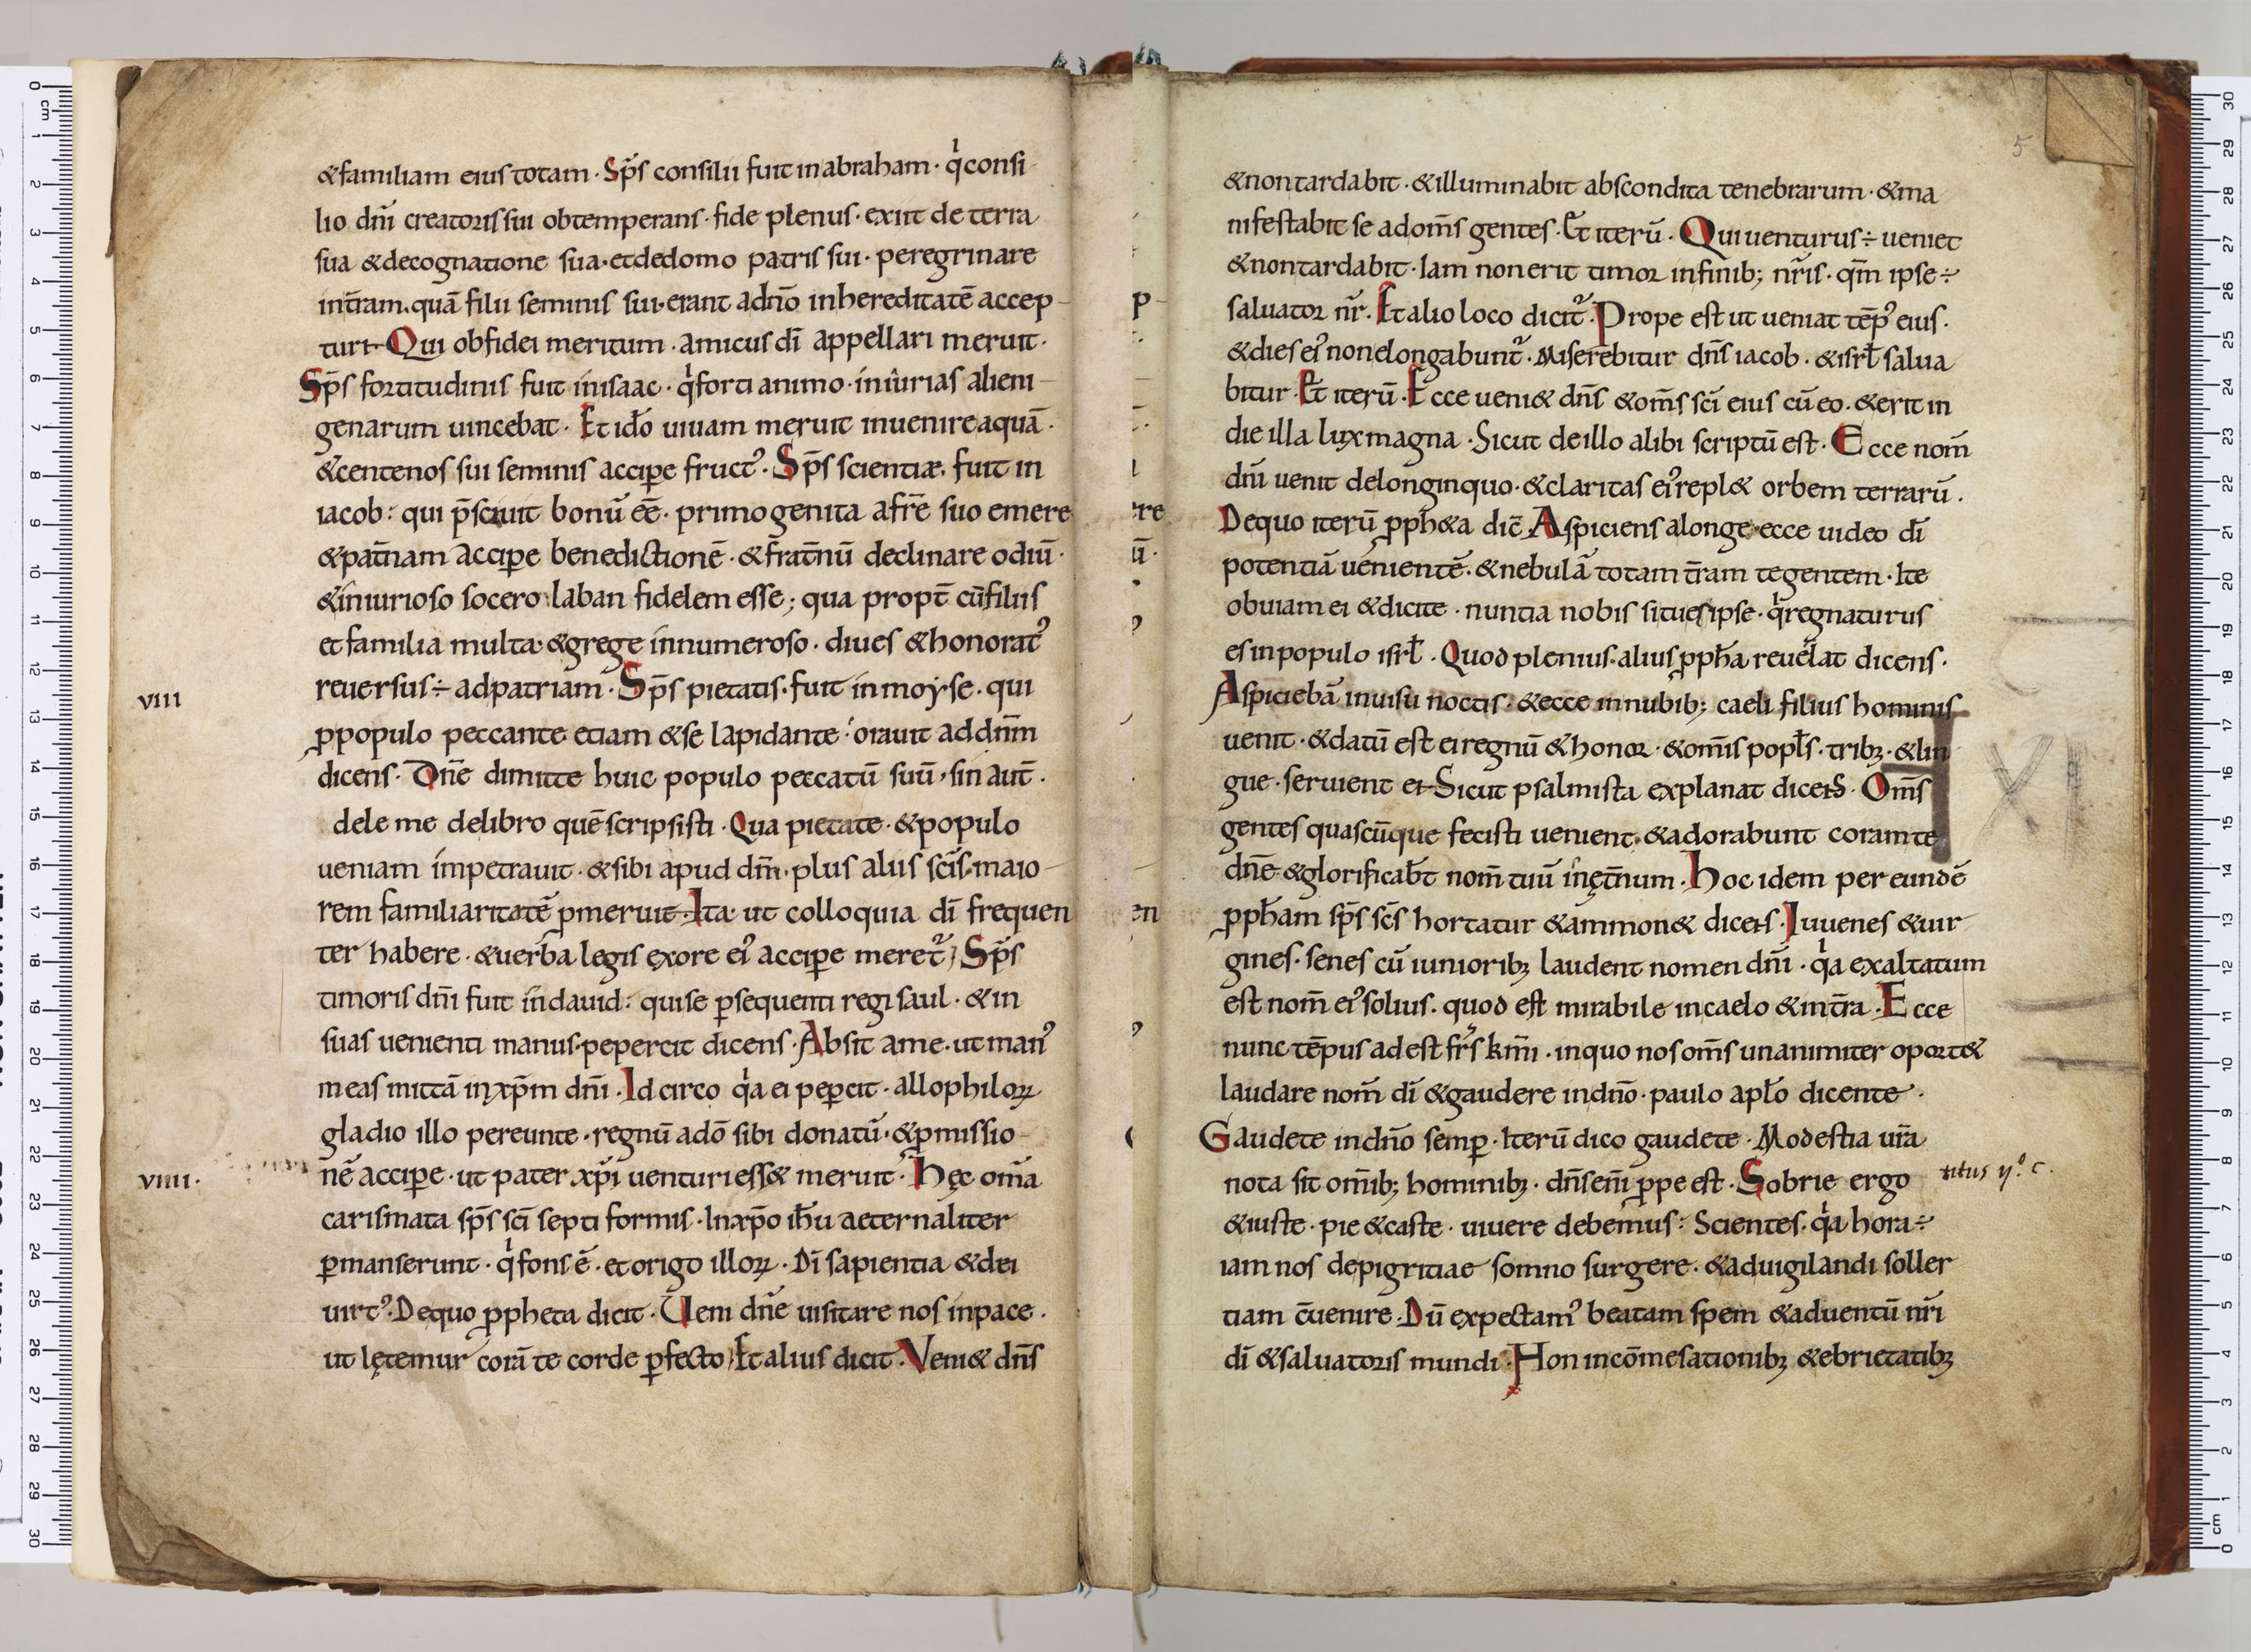 &familiam eius totam · Sp̄s consilii fuit in abraham · qͥ consi
lio dn̄i creatoris sui obtemperans · fide plenus · exiit de terra
sua & de cognatione sua · et de domo patris sui · peregrinare
in t̄ram · quā filii seminis sui · erant ad n̄o in hereditatē accep
turi · Qui ob fidei meritum · amicus dī appellari meruit ·
Sp̄s fortitudinis fuit in isaac · qͥ forti animo · iniurias alieni
genarum uincebat · Et id̄o uiuam meruit inuenire aquā ·
& centenos sui seminis accipe fructꝰ · Sp̄s scientiæ · fuit in
iacob : qui p̄sciuit bonū eē · primogenita a fr̄e suo emere
& pat̄nam accipe benedictionē · & frat̄nū declinare odiū ·
& iniurioso socero laban fidelem esse ; qua propt̄ cū filiis
et familia multa · & grege innumeroso · diues & honoratꝰ
uiii
reuersus ÷ ad patriam · Sp̄s pietatis · fuit in moyse · qui
ꝓ populo peccante etiam & se lapidante · orauit ad dn̄m
dicens · Dn̄e dimitte huic populo peccatū suū · sin aut̄ ·
dele me de libro quē scripsisti · Qua pietate · & populo
ueniam impetrauit · & sibi apud dm̄ · plus aliis sc̄is · maio
rem familiaritatē ꝓmeruit · Ita ut colloquia dī frequen
ter habere · & uerba legis ex ore eiꝰ accipe meret᷑ ; Sp̄s
timoris dn̄i fuit in dauid : qui se ꝑsequenti regi saul · & in
suas uenienti manus · pepercit dicens · Absit a me · ut manꝰ
meas mittā in xp̄m dn̄i · Id circo qͥa ei peꝑcit · allophiloꝝ
gladio illo pereunte · regnū a dō sibi donatū · & ꝓmissio
uiiii ·
nē accipe · ut pater xp̄i uenturi ess& meruit · Hęc om̄a
carismata sp̄s sc̄i septiformis · In xp̄o ih̄u aeternaliter
ꝑmanserunt · qͥ fons ē · et origo illoꝝ · Dī sapientia & dei
uirtꝰ · De quo ꝓpheta dicit · Ueni dn̄e uisitare nos in pace ·
ut lętemur corā te corde ꝑfecto ; Et alius dicit · Veni& dn̄s
5
& non tardabit · & illuminabit abscondita tenebrarum · & ma
nifestabit se ad om̄s gentes · Et iterū · Qui uenturus ÷ ueniet
& non tardabit · Iam non erit timor in finib; nr̄is · qm̄ ipse ÷
saluator nr̄ · Et alio loco dicit᷑ · Prope est ut ueniat tēpꝰ eius ·
& dies eiꝰ non elongabunt᷑ · Miserebitur dn̄s iacob · & isrł salua
bitur · Et iterū · Ecce ueni& dn̄s & om̄s sc̄i eius cū eo · & erit in
die illa lux magna · Sicut de illo alibi scriptū est · Ecce nom̄
dn̄i uenit de longinquo · & claritas eiꝰ repl& orbem terrarū ·
De quo iterū ꝓph&a dic̄ · Aspiciens a longe · ecce uideo dī
potentiā uenientē · & nebulā totam t̄ram tegentem · Ite
obuiam ei & dicite · nuntia nobis si tu es ipse · qͥ regnaturus
es in populo isrł · Quod plenius · alius ꝓph̄a reuelat dicens ·
Aspiciebā in uisu noctis · & ecce in nubib; caeli filius hominis
uenit · & datū est ei regnū & honor · & om̄is popłs · tribꝫ · & lin
XI
gue · seruient ei · Sicut psalmista explanat dicens · Om̄s
gentes quascūque fecisti uenient · & adorabunt coram te
dn̄e & glorificab̄t nom̄ tuū in ęt̄num · Hoc idem per eundē
ꝓph̄am sp̄s sc̄s hortatur & ammon& dicens · Iuuenes & uir
gines · senes cū iunioribꝫ laudent nomen dn̄i · qͥa exaltatum
est nom̄ eiꝰ solius · quod est mirabile in caelo & in t̄ra · Ecce
nunc tēpus adest fr̄s km̄i · in quo nos om̄s unanimiter oport&
laudare nom̄ dī & gaudere in dn̄o · paulo apło dicente ·
Gaudete in dn̄o semꝑ · Iterū dico gaudete · Modestia ur̄a
nota sit om̄ib; hominibꝫ · dn̄s eni̅ ꝓpe est · Sobrie ergo
titus ijº c ·
& iuste · pie & caste · uiuere debemus : Scientes · qͥa hora ÷
iam nos de pigritiae somno surgere · & aduigilandi soller
tiam c̄uenire · Dū expectamꝰ beatam spem & aduentū nr̄i
dī & saluatoris mundi · Non in cōmesationibꝫ & ebrietatibꝫ